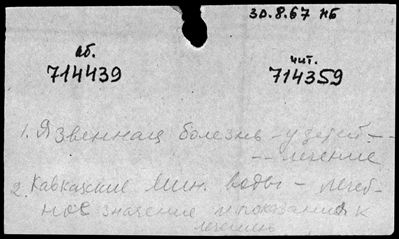 30.8.67 нб
аб. чит.
714439 714359
1. Язвенная болезнь - у детей - -
- - лечение
2. Кавказские мин. воды - лечеб-
ное значение и показания к
лечению